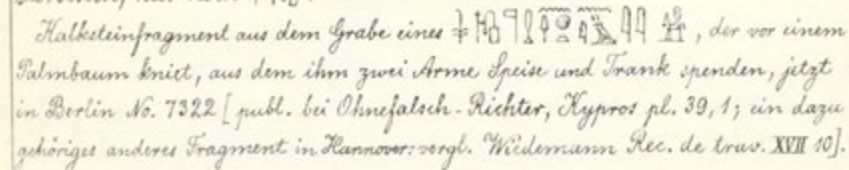 Halksteinfragment aus dem Grabe eines , der vor einem
Palmbaum kniet, aus dem ihm zwei Arme Speise und Trank spenden, jetzt
in Berlin No. 7322 [ publ. bei Ohnefalsch-Richter, Kypros pl. 39, 1; ein dazu
gehöriges anderes Fragment in Hannover: vergl. Wiedemann Rec. de trav. XVII 10].